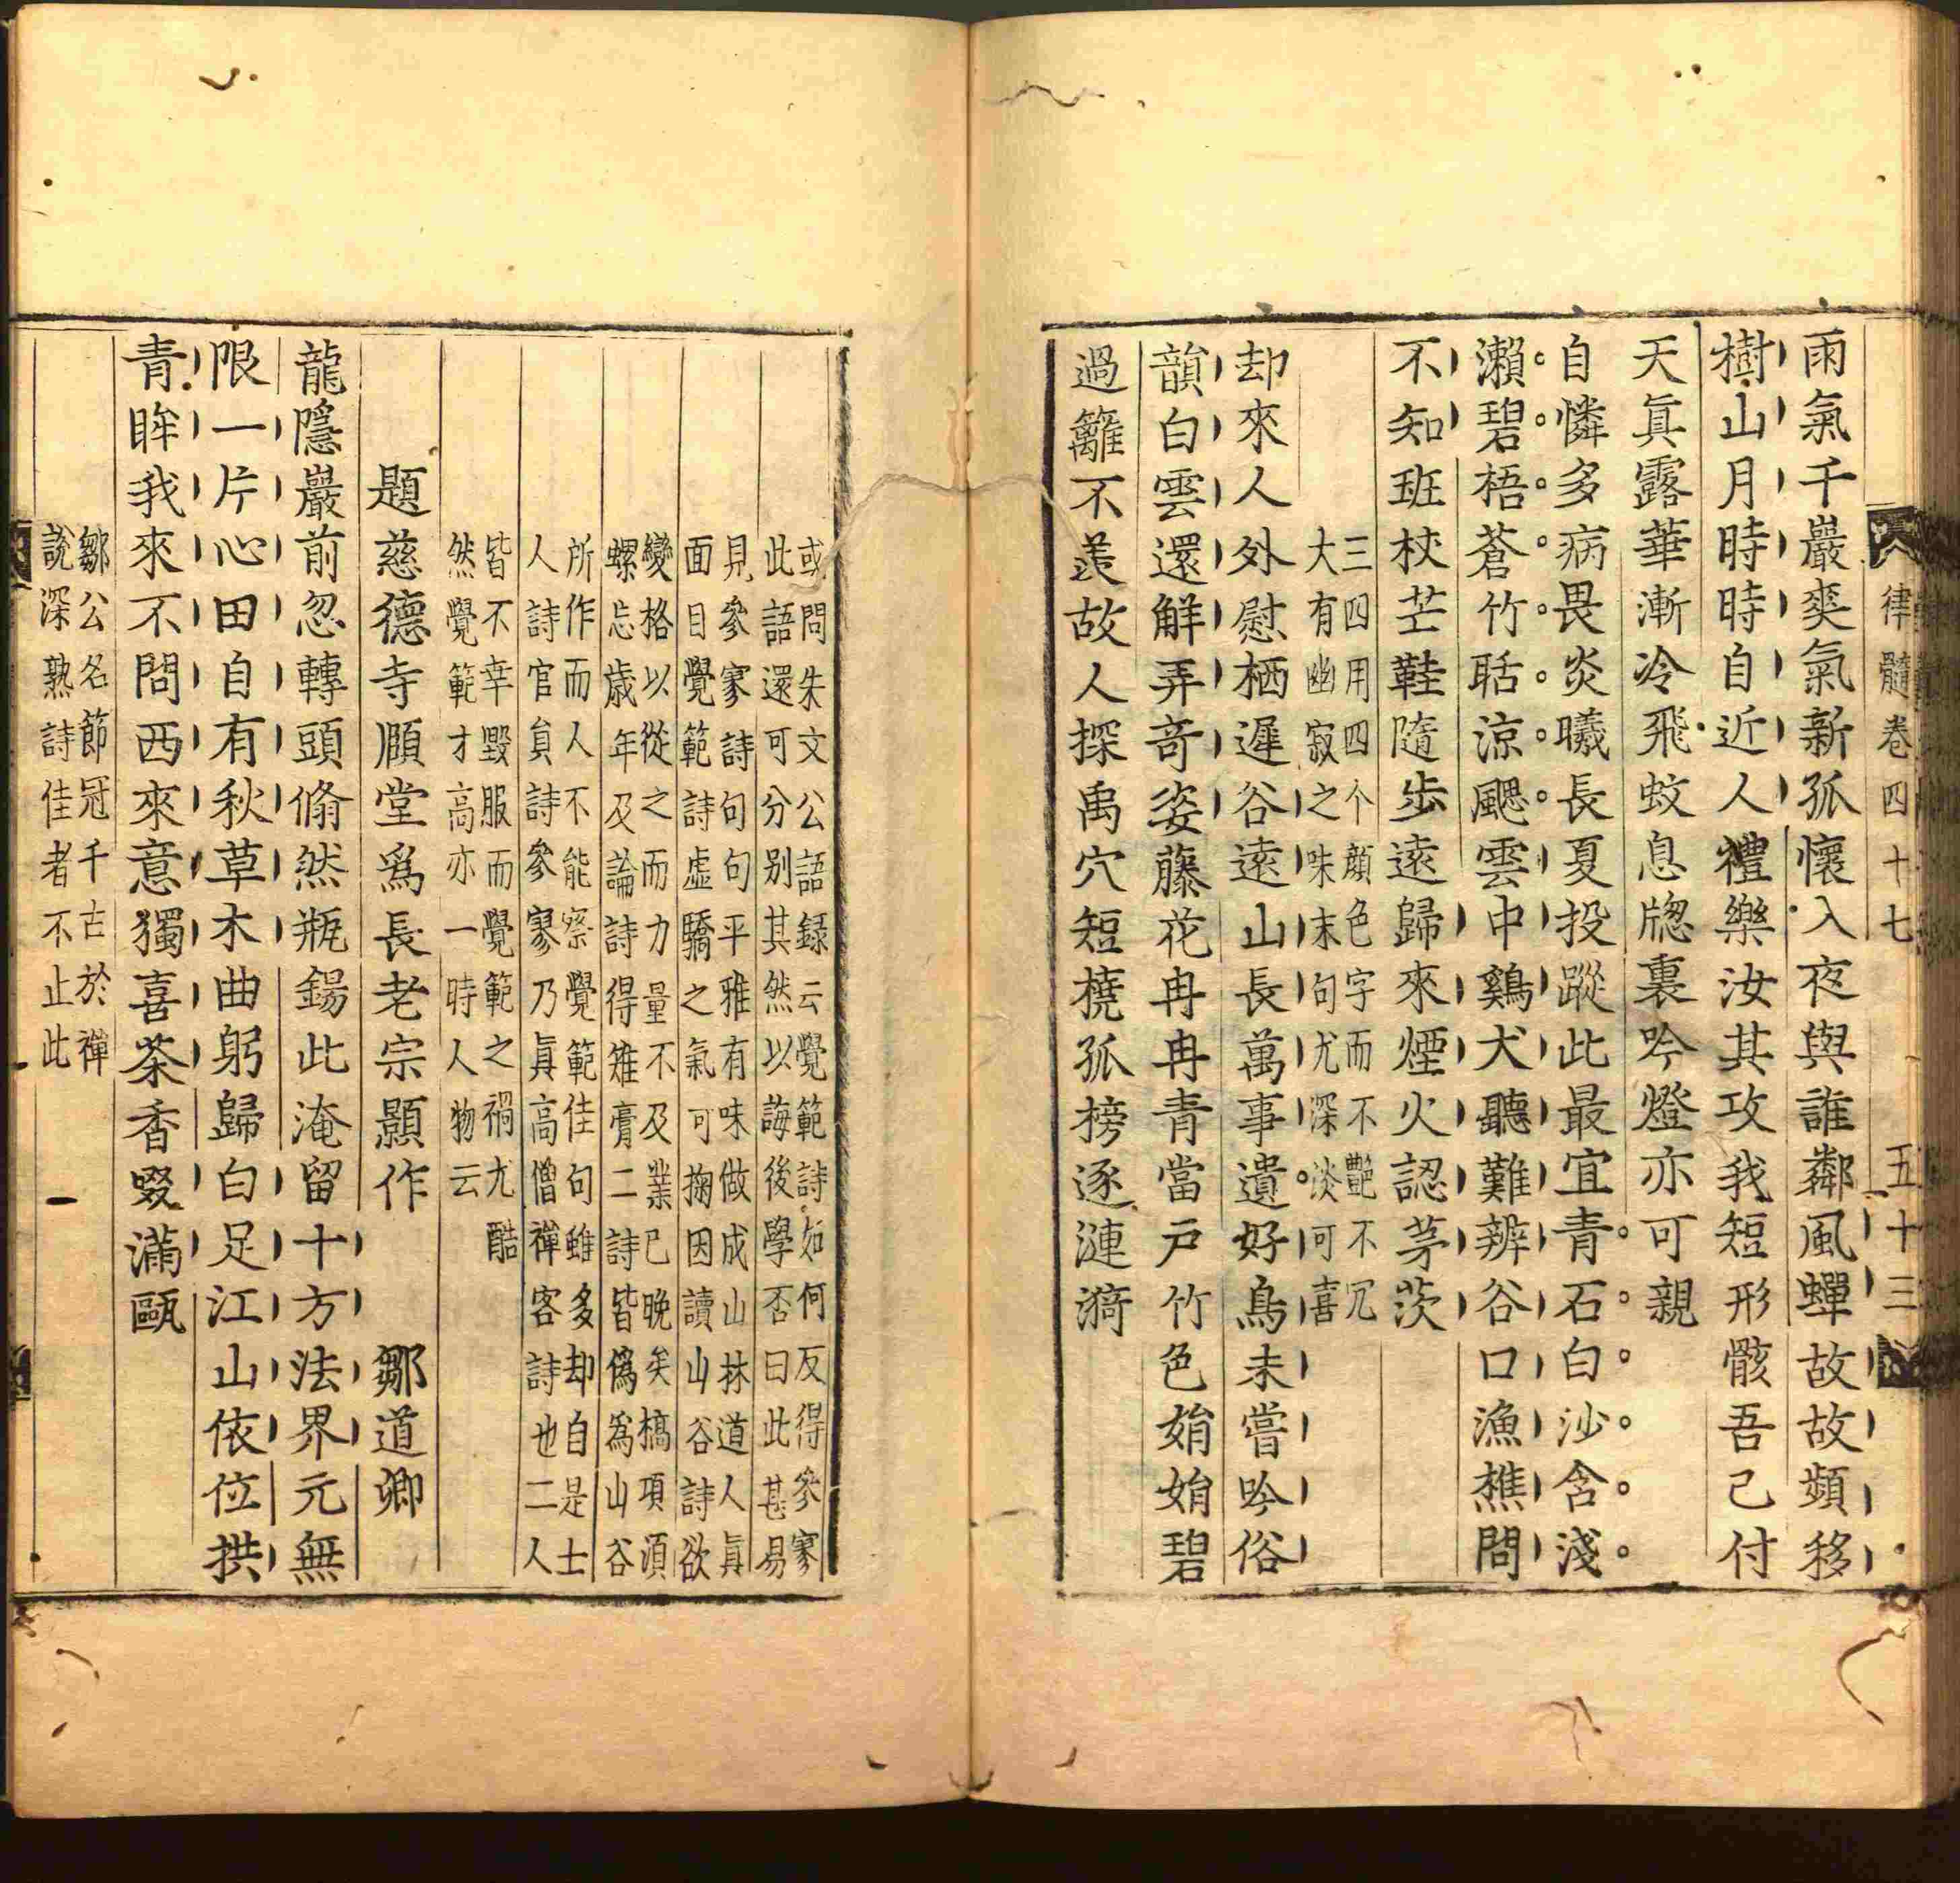 律髓卷四十七 五十三
雨氣千巖爽氣新孤懷入夜與誰鄰風蟬故故頻移
樹山月時時自近人禮樂汝其攻我短形骸吾已付
天真露華漸冷飛蚊息牕裏吟燈亦可親
自憐多病畏炎曦長夏投蹤此最宜青石白沙含淺
瀨碧梧蒼竹聒涼颸雲中鷄犬聽難辨谷口漁樵問
不知班杖芒鞋隨步遠歸來煙火認茅茨
三四用四个顔色字而不艷不冗
大有幽寂之味末句尤深淡可喜
却來人外慰栖遲谷遠山長萬事遺好鳥未嘗吟俗
韻白雲還解弄奇姿藤花冉冉青當戸竹色娟娟碧
過籬不羨故人探禹穴短橈孤榜逐漣漪
或問朱文公語録云覺範詩如何反得參寥
此語還可分别其然以誨後學否曰此甚易
見參寥詩句句平雅有味做成山林道人真
面目覺範詩虛驕之氣可掬因讀山谷詩欲
變格以從之而力量不及業已晚矣槁項湏
螺忘歲年及論詩得雉膏二詩皆僞為山谷
所作而人不能察覺範佳句雖多却自是士
人詩官員詩參寥乃真高僧禪客詩也二人
皆不幸毀服而覺範之禍尤酷
然覺範才高亦一時人物云
題慈德寺頥堂爲長老宗顥作 鄒道卿
龍隱巖前忽轉頭翛然瓶鍚此淹留十方法界元無
限一片心田自有秋草木曲躬歸白足江山依位拱
青眸我來不問西來意獨喜茶香啜滿甌
鄒公名節冠千古於禪
説深熟詩佳者不止此